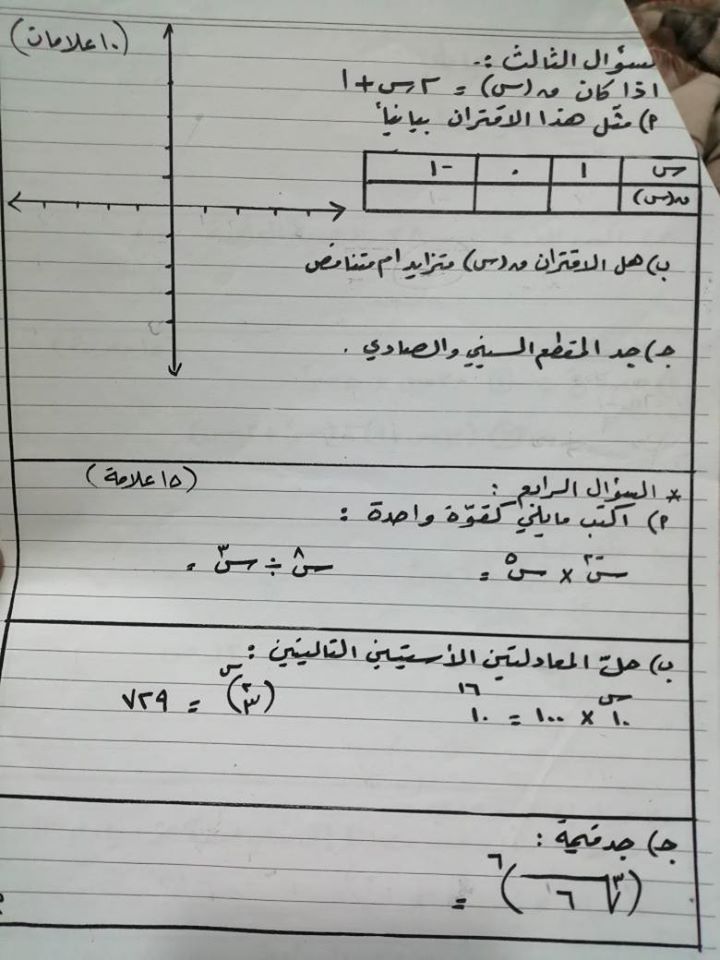 (١٠ علامات)
سؤال الثالث :-
اذا كان ق(س) = ٢س + ١
أ) مثل هذا الاقتران بيانياً
س ١ ٠ -١
ق(س)
ب) هل الاقتران ق(س) متزايد ام متناقص
جـ) جد المقطع السيني والصادي .
* السؤال الرابع : (١٥ علامة)
أ) اكتب مايلي كقوّة واحدة :
س^-٢ × س^٥ = س^٨ ÷ س^٣ =
ب) حلّ المعادلتين الأسيتين التاليتين :
١٠^س × ١٠٠ = ١٠^١٦ (٣^٢)^س = ٧٢٩
جـ) جد قيمة :
(∛٦)^٦ =